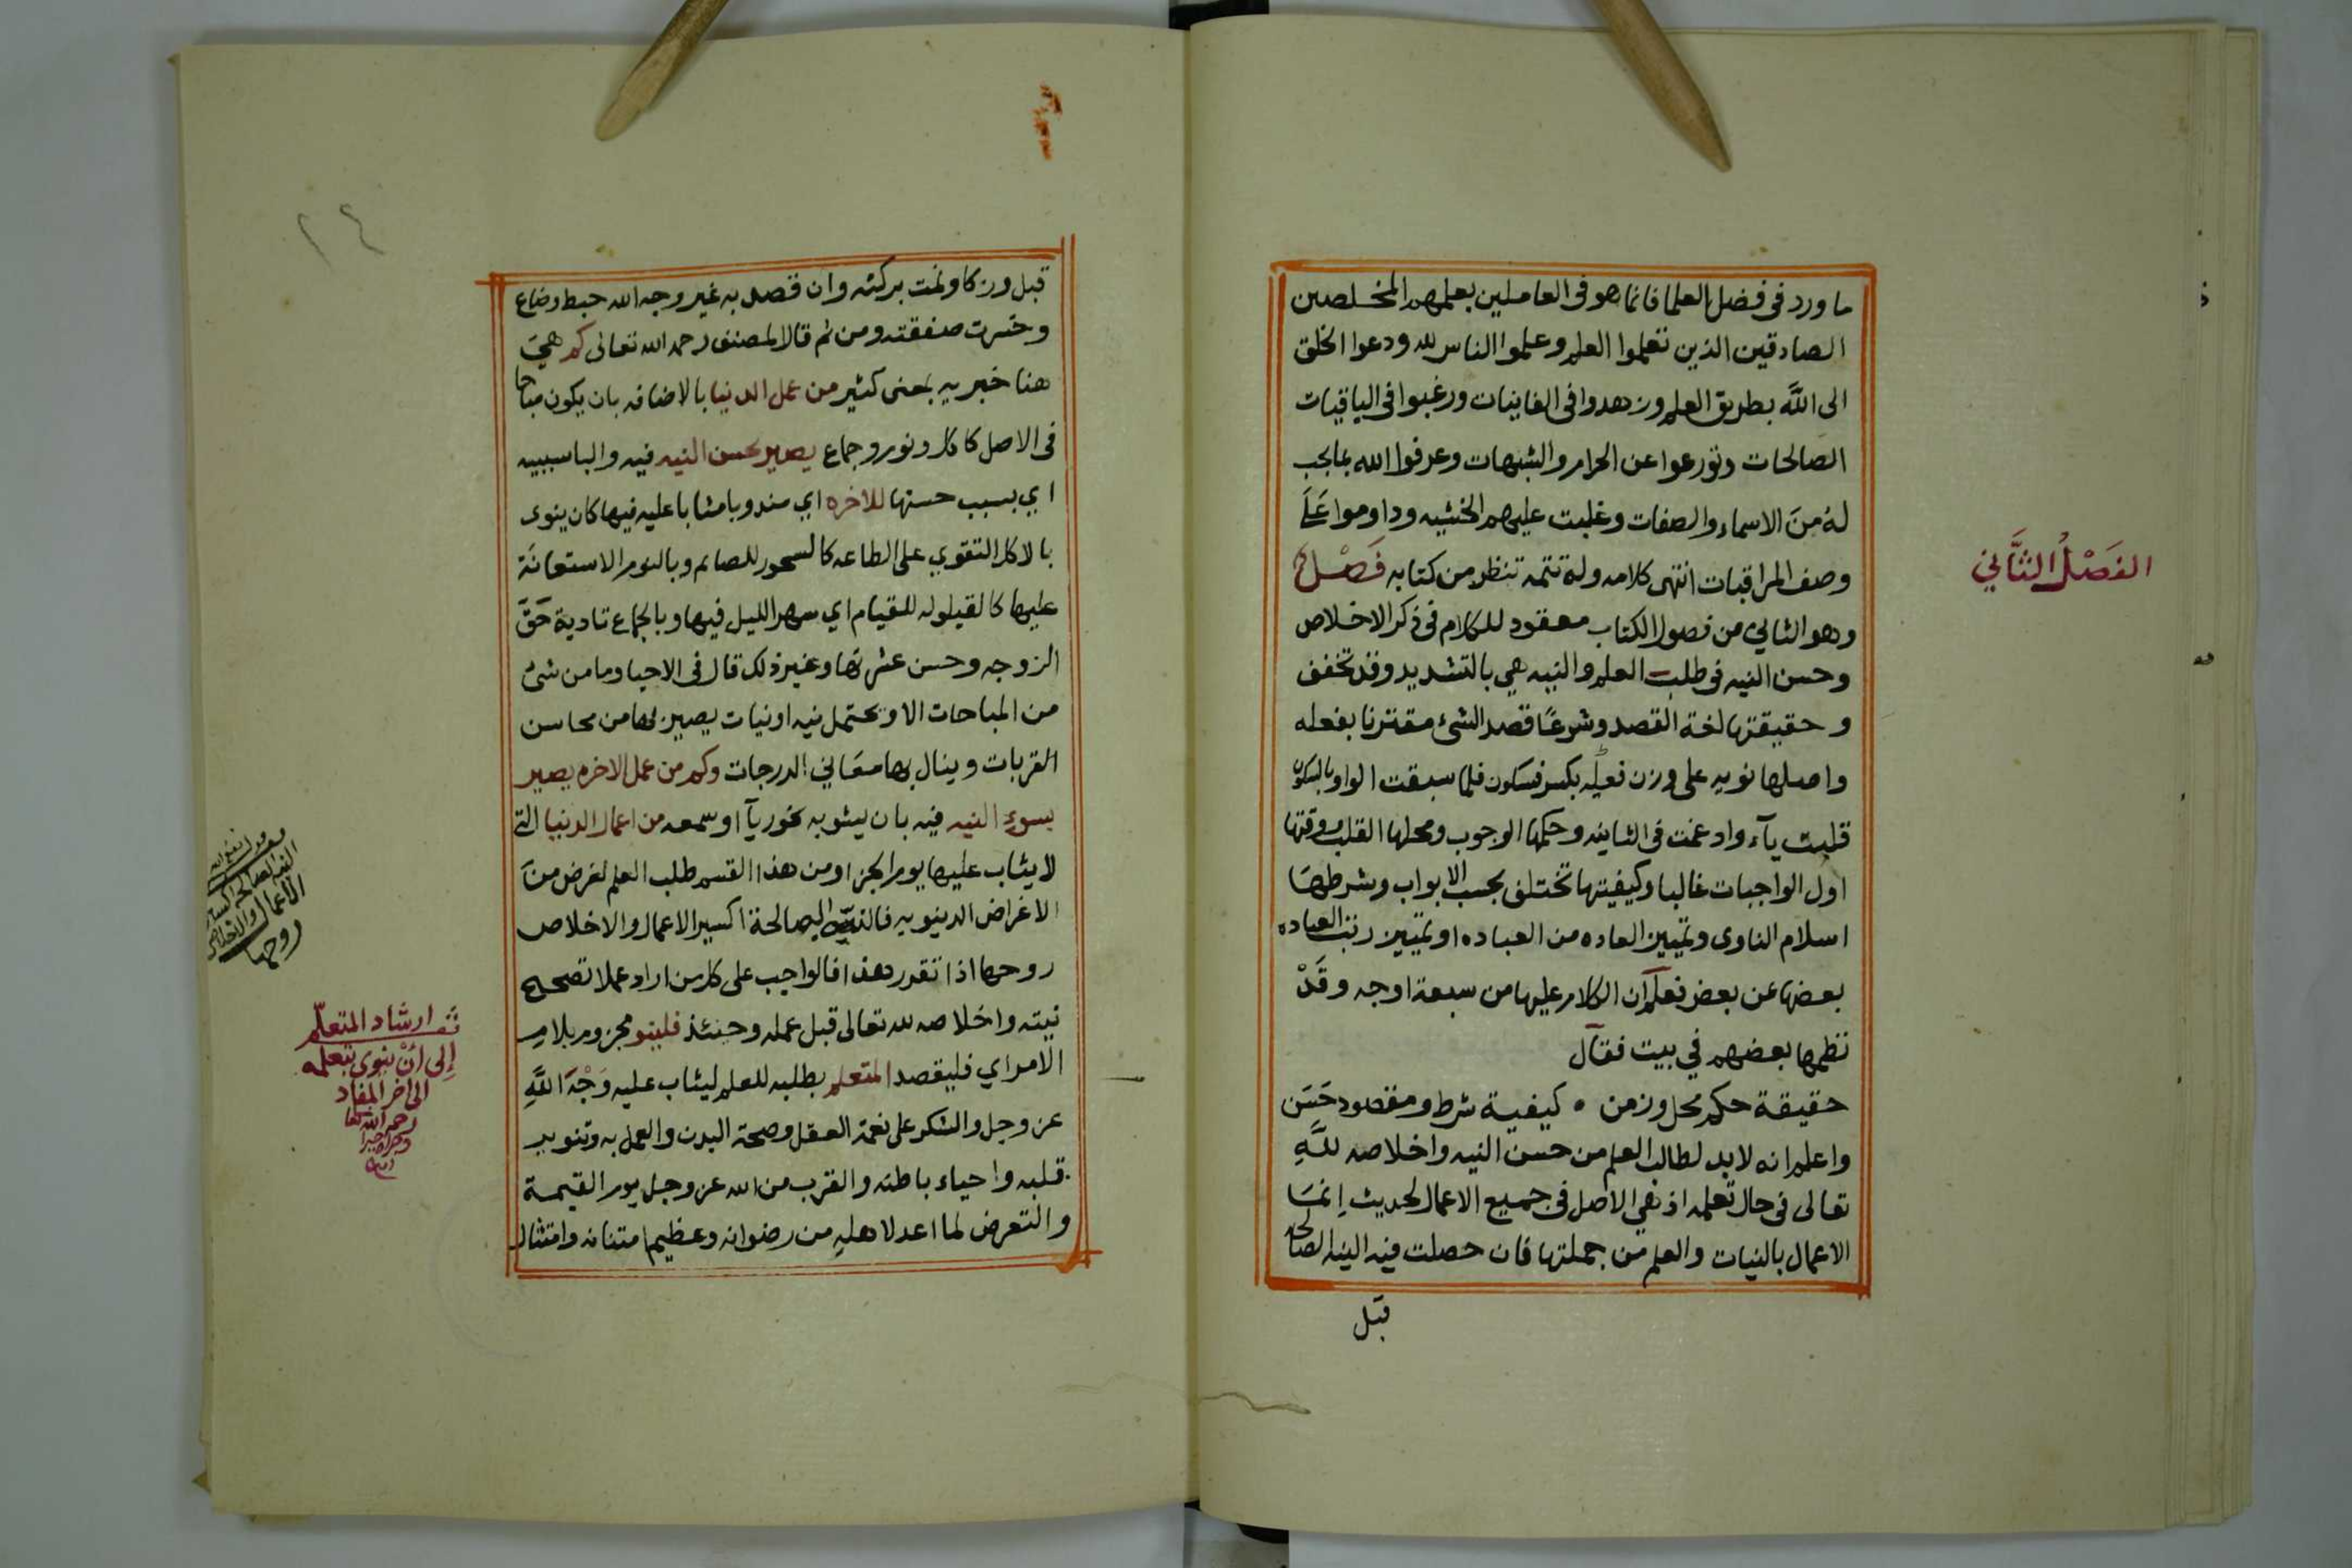 ما ورد في فضل العلما فانما هو في العاملين بعلمهم المخلصين
الصادقين الذين تعلموا العلم وعلموا الناس لله ودعوا الخلق
الى اللَّه بطريق العلم وزهدوا في الفانيات ورغبوا في الباقيات
الصالحات وتورعوا عن الحرام والشبهات وعرفوا الله بما يجب
له منَ الاسماء والصفات وغلبت عليهم الخشيه وداوموا عَلَى
وصف المراقبات انتهى كلامه وله تتمه تنظر من كتابه فَصْل
الفَصْلُ الثَّاني
وهو الثاني من فصول الكتاب معقود للكلام في ذكر الاخلاص
وحسن النيه في طلب العلم والنيه هي بالتشديد وقد تخفف
وحقيقتها لغة القصد وشرعًا قصد الشئ مقترنا بفعله
واصلها نويه على وزن فعله بكسر فسكون فلما سبقت الواو بالسكون
قلبت يآء وادغمت في الثانيه وحكمها الوجوب ومحلها القلب ووقتها
اول الواجبات غالبا وكيفيتها تختلف بحسب الابواب وشرطها
اسلام الناوى وتمييز العاده من العباده او تمييز رتب العباده
بعضها عن بعض فعلم آن الكلام عليها من سبعة اوجه وقَدْ
نظمها بعضهم في بيت فقآل
حقيقة حكم محل وزمن ۰ كيفية شرط ومقصود حَسَن
واعلم انه لابد لطالب العلم من حسن النيه واخلاصه للَّهِ
تعالى في حال تعلمه اذ هي الاصل في جميع الاعمال لحديث إنمَا
الاعمال بالنيات والعلم من جملتها فان حصلت فيه النيه الصالحه
قبل
٢٤
قبل وزكا ونمت بركته وان قصد به غير وجه الله حبط وضاع
وخسرت صفقته ومن ثم قال المصنف رحمه الله تعالى كم هيَ
هنا خبريه بمعنى كثير من عمل الدنيا بالاضافه بان يكون مباحا
في الاصل كاكل ونوم وجماع يصير بحسن النيه فيه والبا سببيه
اي بسبب حسنها للاخره اي مندوبا مثابا عليه فيها كان ينوى
بالاكل التقوي على الطاعه كالسحور للصايم وبالنوم الاستعانَة
عليها كالقيلوله للقيام اي سهر الليل فيها وبالجماع تادية حَقَّ
الزوجه وحسن عشرتها وغير ذلك قال في الاحيا وما من شئ
من المباحات الا ويحتمل نيه او نيات يصير بها من محاسن
القربات وينال بها معَاني الدرجات وكم من عمل الاخره يصير
بسوءِ النيه فيه بان يشوبه نحو ريآ او سمعه من اعمال الدنيا التي
لا يثاب عليها يوم الجزا ومن هذا القسم طلب العلم لغرض منَ
الاغراض الدينويه فالنيّه الصالحة اكسير الاعمال والاخلاص
روحها اذا تقرر هذا فالواجب على كل من اراد عملا تصحيح
نيته واخلاصه لله تعالى قبل عمله وحنئذ فلينو مجزوم بلام
الامر اي فليقصد المتعلم بطلبه للعلم ليثاب عليه وَجْهَ اللَّهِ
عز وجل والشكر على نعمة العقل وصحة البدن والعمل به وتنوير
قلبه واحياء باطنه والقرب من الله عز وجل يوم القيمة
والتعرض لما اعد لاهلهِ من رضوانه وعظيم امتنانه وامتثال
النيه الصالحه اكسير
الاعمال والاخلاص
روحها
ارشاد المتعلّم
إلى أنْ ينوى بتعلمه
الى اخر المفاد
رحمه الله تعا